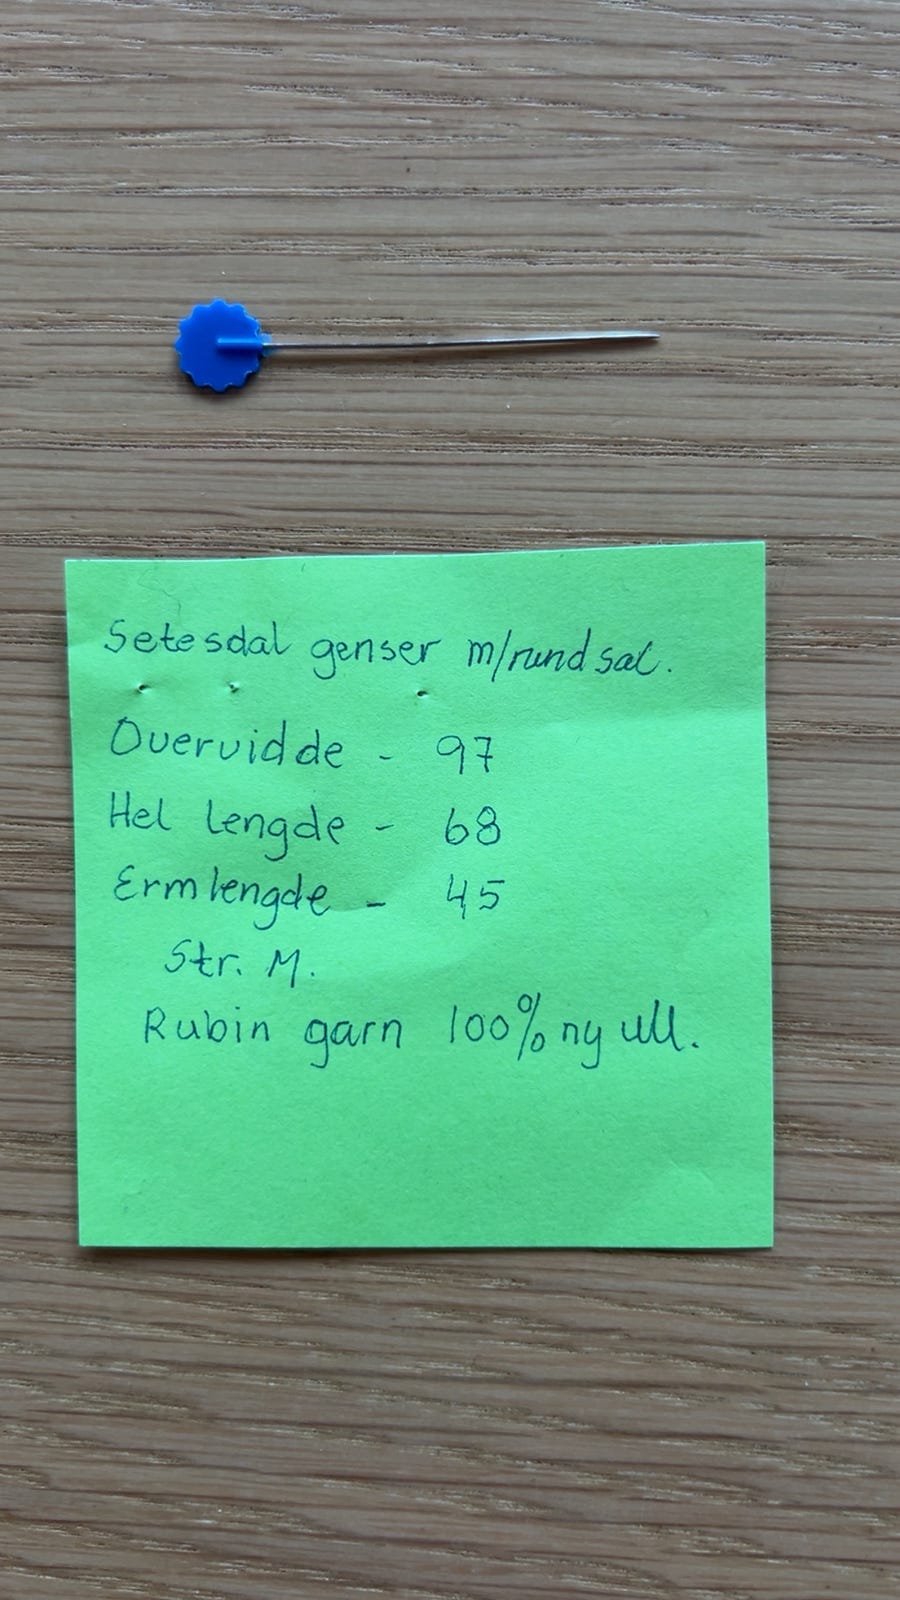 Setesdal genser m/rund sal.
Overvidde - 97
Hel lengde - 68
Ermlengde - 45
Str. M.
Rubin garn 100% ny ull.